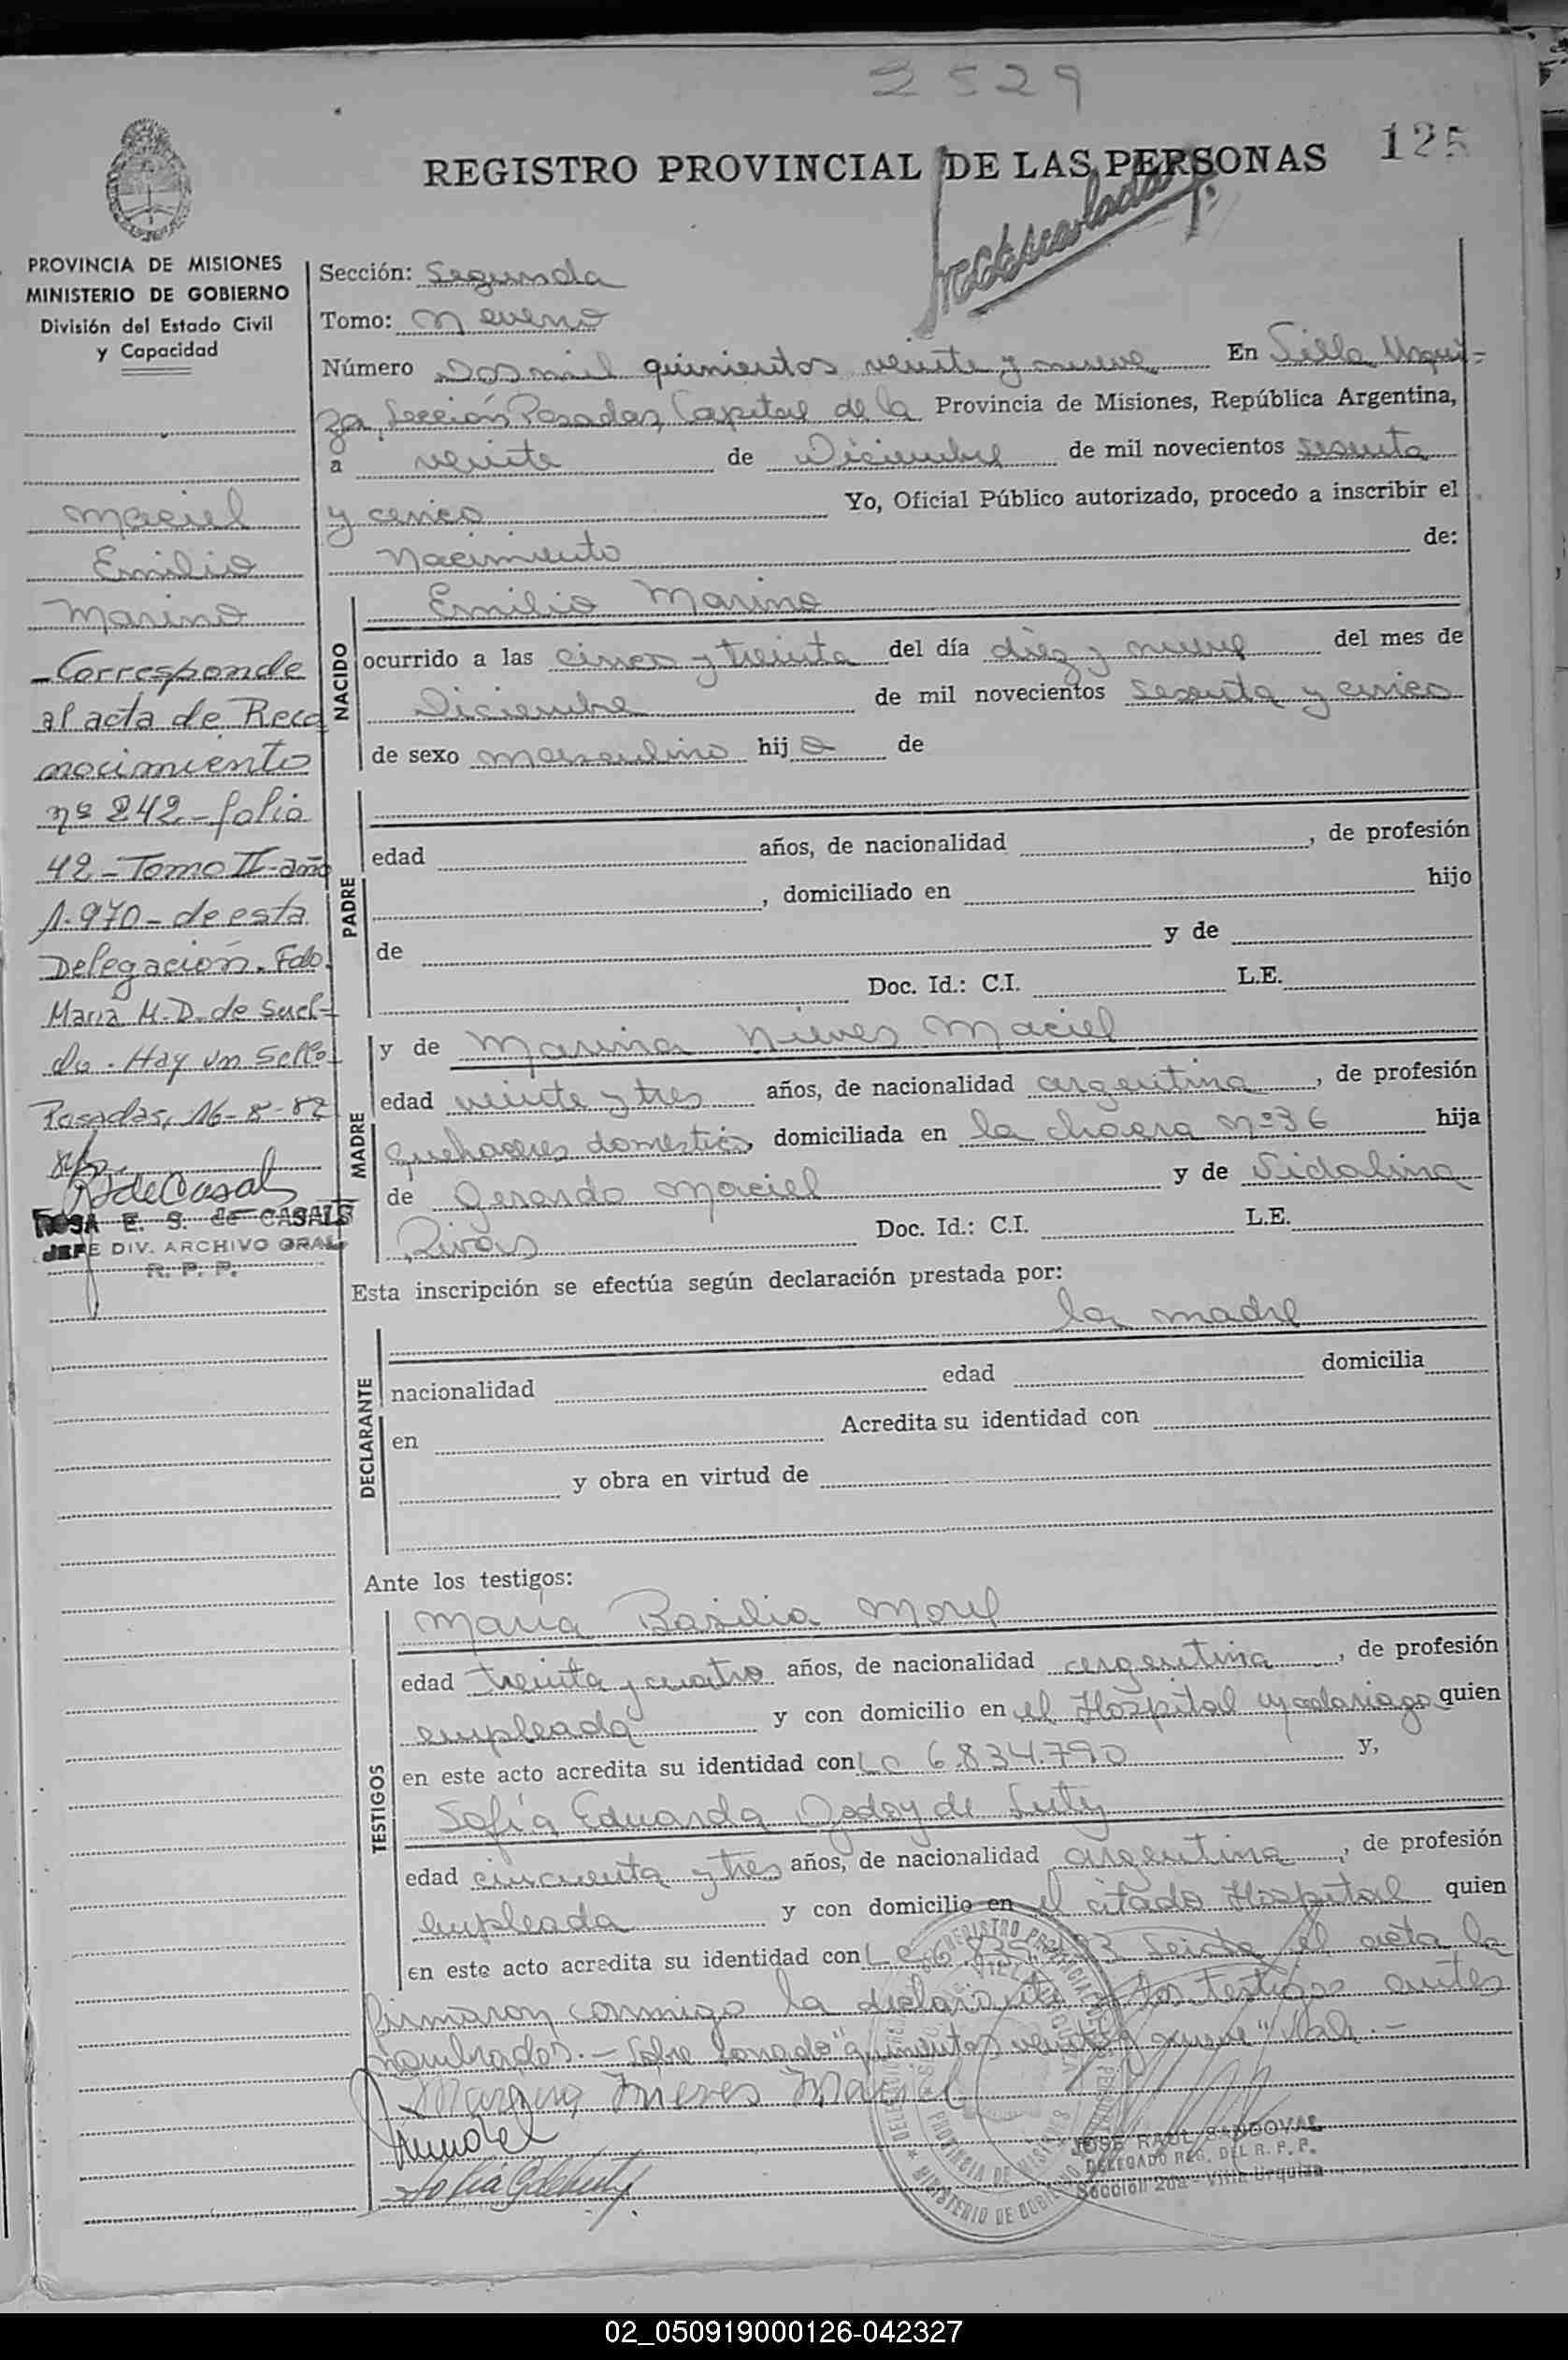 2529
125
REGISTRO PROVINCIAL DE LAS PERSONAS
PROVINCIA DE MISIONES
MINISTERIO DE GOBIERNO
División del Estado Civil
y Capacidad
Maciel
Emilio
Marino
-Corresponde
al acta de Reco
nocimiento
nº 242.-folio
42-Tomo II-año
1.970-de esta
Delegación. Fdo.
Maria M.D. de Suel-
do. Hay un Sello-
Posadas, 16-8-82
ROSA E. S. de CASALS
JEFE DIV. ARCHIVO GRAL.
R. P. P.
Sección: Segunda
Tomo: Noveno
Número Dos mil quinientos veinte y nueve En Villa Urqui-
za, Sección Posadas, Capital de la Provincia de Misiones, República Argentina,
a veinte de Diciembre de mil novecientos sesenta
y cinco Yo, Oficial Público autorizado, procedo a inscribir el
Nacimiento de:
NACIDO
Emilio Marino
ocurrido a las cinco y treinta del día diez y nueve del mes de
Diciembre de mil novecientos sesenta y cinco
de sexo masculino hijo de
PADRE
edad años, de nacionalidad , de profesión
, domiciliado en hijo
de y de
Doc. Id.: C.I. L.E.
MADRE
y de Marina Nieves Maciel
edad veinte y tres años, de nacionalidad argentina, de profesión
quehaceres domesticos, domiciliada en la chacra Nº 36 hija
de Gerardo Maciel y de Vidalina
Rivas Doc. Id.: C.I. L.E.
Esta inscripción se efectúa según declaración prestada por:
la madre
DECLARANTE
nacionalidad edad domicilia
en Acredita su identidad con
y obra en virtud de
Ante los testigos:
TESTIGOS
María Basilia Morel
edad treinta y cuatro años, de nacionalidad argentina, de profesión
empleada y con domicilio en el Hospital Madariaga quien
en este acto acredita su identidad con LC 6.834.790 y,
Sofía Eduarda Godoy de
edad cincuenta y tres años, de nacionalidad argentina, de profesión
empleada y con domicilio en el citado Hospital quien
en este acto acredita su identidad con LC 6. el acta la
firmaron conmigo la declarante y los testigos antes
nombrados.- Sobre borrado "quinientos veinte y nueve" Vale.-
Marina Nieves Maciel
JOSE RAUL SANDOVAL
DELEGADO REG. DEL R. P. P.
Sección 2da - Villa Urquiza
02_050919000126-042327